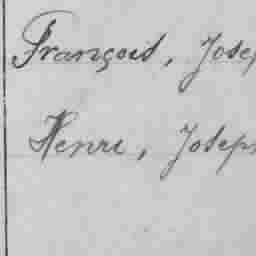 François, Josep
Henri, Joseph